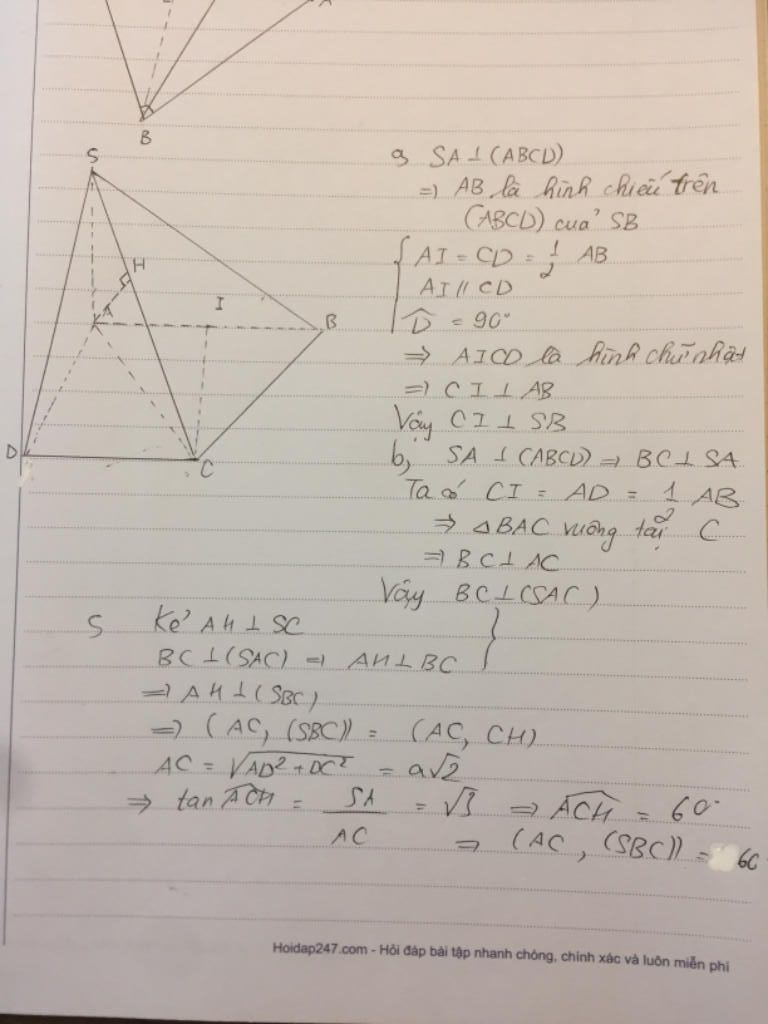 B
S
H
A
I
B
D
C
a, SA ⊥ (ABCD)
=> AB là hình chiếu trên
(ABCD) của SB
{ AI = CD = 1/2 AB
AI // CD
D̂ = 90°
=> AICD là hình chữ nhật
=> CI ⊥ AB
Vậy CI ⊥ SB
b, SA ⊥ (ABCD) => BC ⊥ SA
Ta có CI = AD = 1/2 AB
=> ΔBAC vuông tại C
=> BC ⊥ AC
Vậy BC ⊥ (SAC)
S Kẻ AH ⊥ SC }
BC ⊥ (SAC) => AH ⊥ BC
=> AH ⊥ (SBC)
=> (AC, (SBC)) = (AC, CH)
AC = √(AD² + DC²) = a√2
=> tan ACH = SA/AC = √3 => ACH = 60°
=> (AC, (SBC)) = 60
Hoidap247.com - Hỏi đáp bài tập nhanh chóng, chính xác và luôn miễn phí